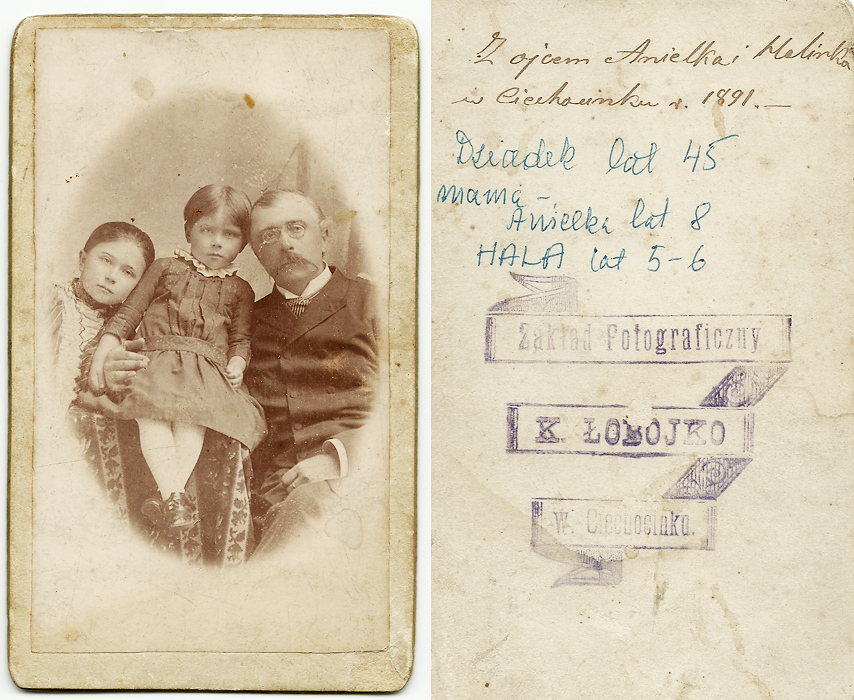 Z ojcem Anielka i Halinka
w Ciechocinku r. 1891.—
Dziadek lat 45
mama –
Anielka lat 8
HALA lat 5-6
Zakład Fotograficzny
K. ŁOBOJKO
W. Ciechocinku.